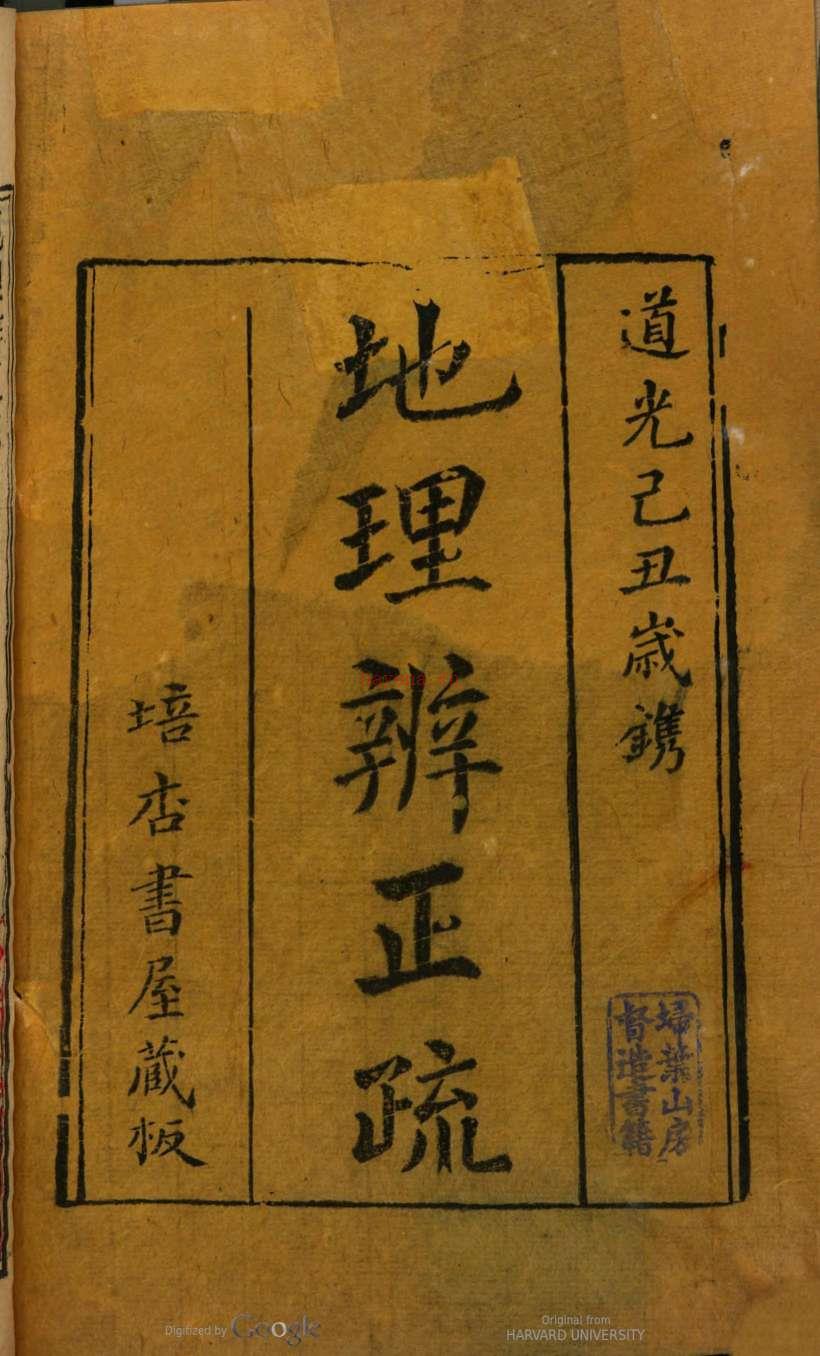 道光己丑歲鐫
地理辨正疏
培杏書屋藏板
掃葉山房
督造書籍
Digitized by Google
Original from
HARVARD UNIVERSITY